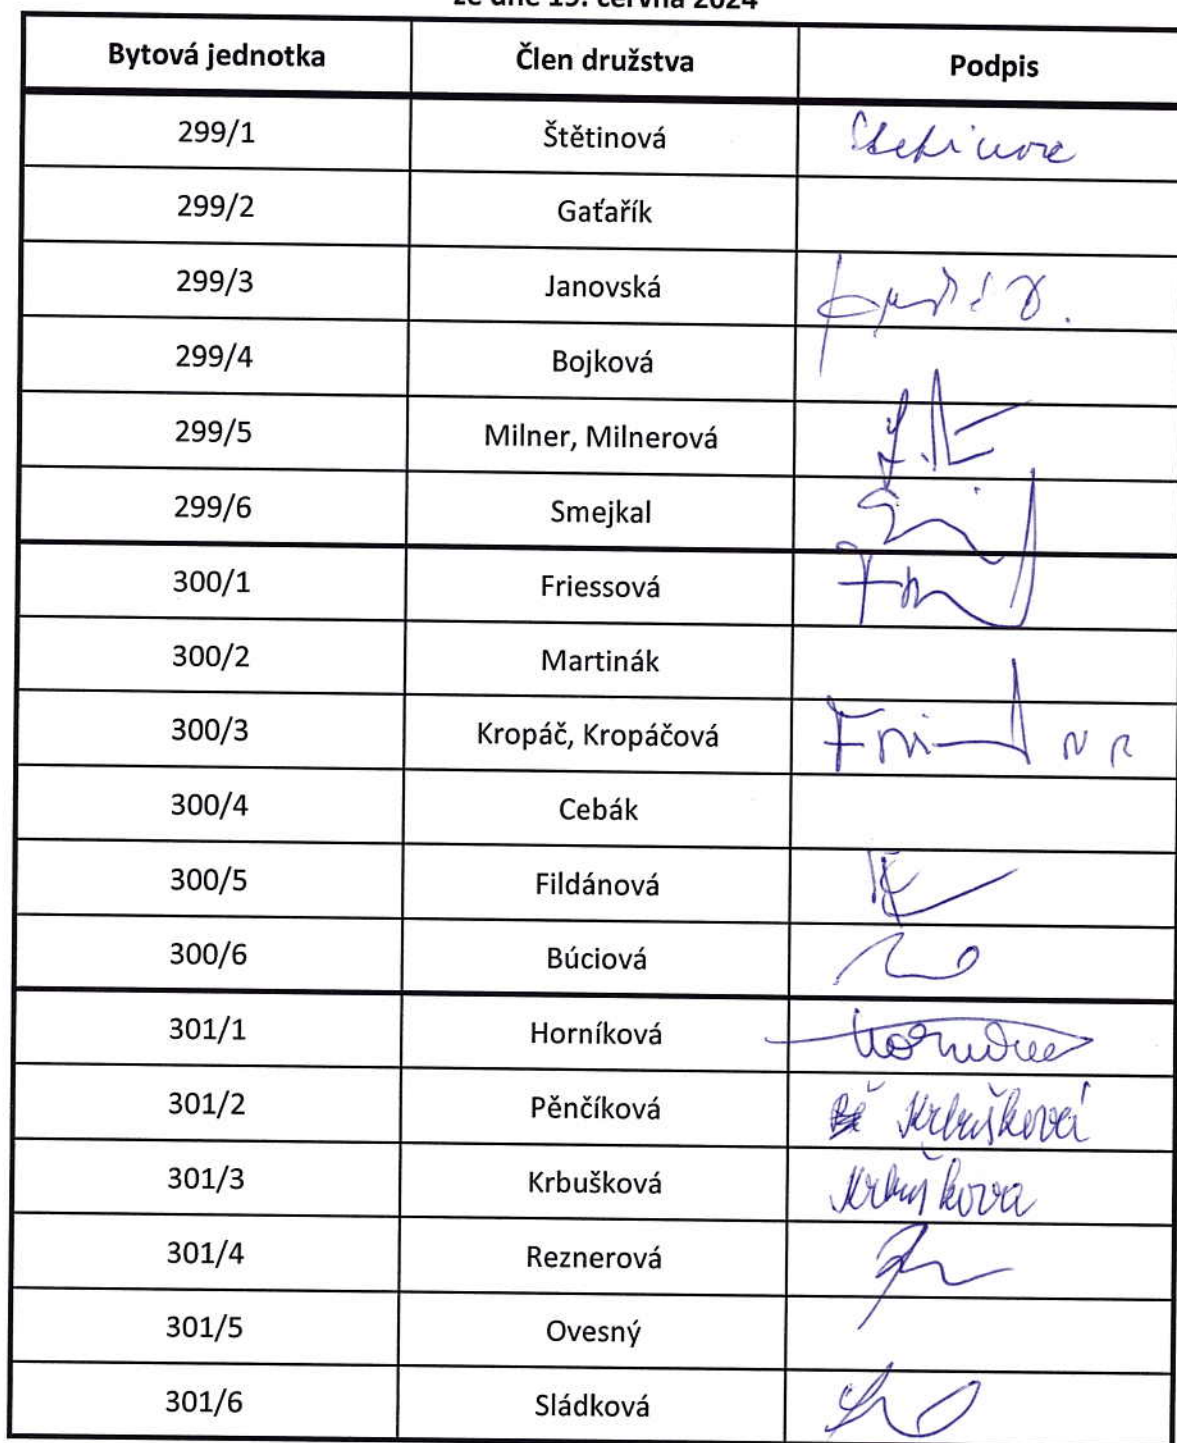 ze dne 19. června 2024
Bytová jednotka Člen družstva Podpis
299/1 Štětinová
299/2 Gaťařík
299/3 Janovská
299/4 Bojková
299/5 Milner, Milnerová
299/6 Smejkal
300/1 Friessová
300/2 Martinák
300/3 Kropáč, Kropáčová
300/4 Cebák
300/5 Fildánová
300/6 Búciová
301/1 Horníková
301/2 Pěnčíková Krbušková
301/3 Krbušková Krbuškova
301/4 Reznerová
301/5 Ovesný
301/6 Sládková